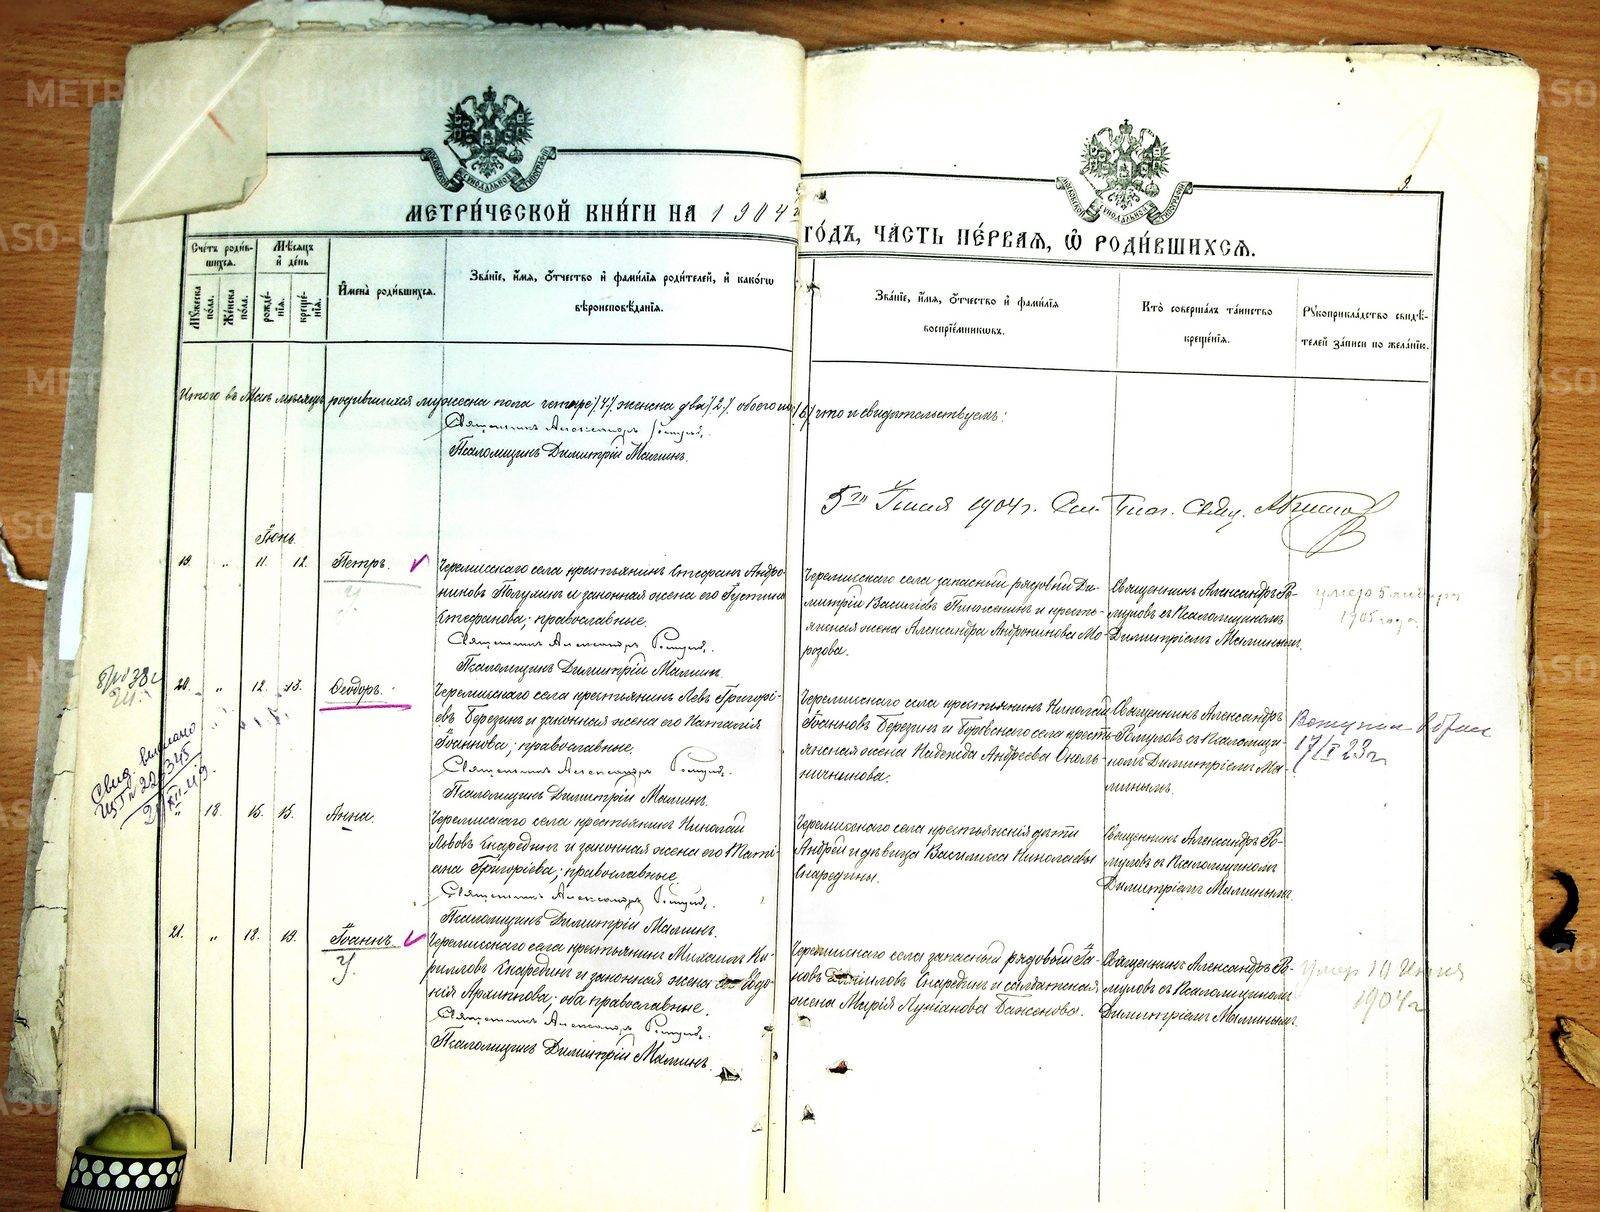 МЕТРИ́ЧЕСКОЙ КНИ́ГИ НА 1904
ГО́ДЪ, ЧА́СТЬ ПЕ́РВАЯ, Ѿ РОДИ́ВШИХСЯ.
Сче́тъ роди́в-
шихся.
Мѣ́сяцъ
и҆ де́нь
Мꙋжеска
по́ла.
Же́нска
по́ла.
рожде́-
нїѧ.
креще́-
нїѧ.
И҆мена̀ роди́вшихся.
Зва́нїе, и҆́мя, ѻ҆́тчество и҆ фами́лїя роди́телей, и҆ како́гѡ
вѣроисповѣ́данїя.
Зва́нїе, и҆́мя, ѻ҆́тчество и҆ фами́лїя
воспрїе́мникωвъ.
Кто̀ соверша́лъ та́инство
креще́нїя.
Рꙋкоприкла́дство свидѣ́-
телей за́писи по жела́нїю.
Итого въ Маѣ мѣсяцѣ родившихся мужеска пола четыре /4/, женска два /2/, обоего /6/ что и свидѣтельствуемъ:
Священникъ Александръ
Псаломщикъ Димитрій Малинъ.
1904 г.
Іюнь.
19. „ 11. 12. Петръ.
Черемисскаго села крестьянинъ Стефанъ Андро-
никовъ Полузинъ и законная жена его Іустина
Стефанова; православные.
Священникъ Александръ
Псаломщикъ Димитрій Малинъ.
Черемисскаго села запасный рядовый Ди-
митрій Василіевъ и кресть-
янская жена Александра Андроникова Мо-
розова.
Священникъ Александръ Ро-
муловъ съ Псаломщикомъ
Димитріемъ Малинымъ.
умер 5 января
1905 года
20. „ 12. 13. Ѳеодоръ.
Черемисскаго села крестьянинъ Левъ Григорі-
евъ Березинъ и законная жена его Наталія
Іоаннова; православные.
Священникъ Александръ
Псаломщикъ Димитрій Малинъ.
Черемисскаго села крестьянинъ Николай
Іоанновъ Березинъ и села кресть-
янская жена Надежда Андреева Околь-
ничникова.
Священникъ Александръ
Ромуловъ съ Псаломщи-
комъ Димитріемъ Ма-
линымъ.
Вступил в брак
17/I 23 г
Свид. выдано
„ 18. 15. 15. Анна.
Черемисскаго села крестьянинъ Николай
Львовъ Снарединъ и законная жена его Маті-
ана Григоріева; православные
Священникъ Александръ
Псаломщикъ Димитрій Малинъ.
Черемисскаго села крестьянскія дѣти
Андрей и дѣвица Василиса Николаевы
Снаредины.
Священникъ Александръ Ро-
муловъ съ Псаломщикомъ
Димитріемъ Малинымъ
21. „ 18. 19. Іоаннъ.
Черемисскаго села крестьянинъ Михаилъ Ки-
рилловъ Снарединъ и законная жена его Евдо-
кія Архиппова; оба православные.
Священникъ Александръ
Псаломщикъ Димитрій Малинъ.
Черемисскаго села запасный рядовый Іа-
ковъ Снарединъ и солдатская
жена Марія Лукіанова Баженова.
Священникъ Александръ Ро-
муловъ съ Псаломщикомъ
Димитріемъ Малинымъ.
умер 10 Июня
1904 г
METRIKI.GASO-URAL.RU